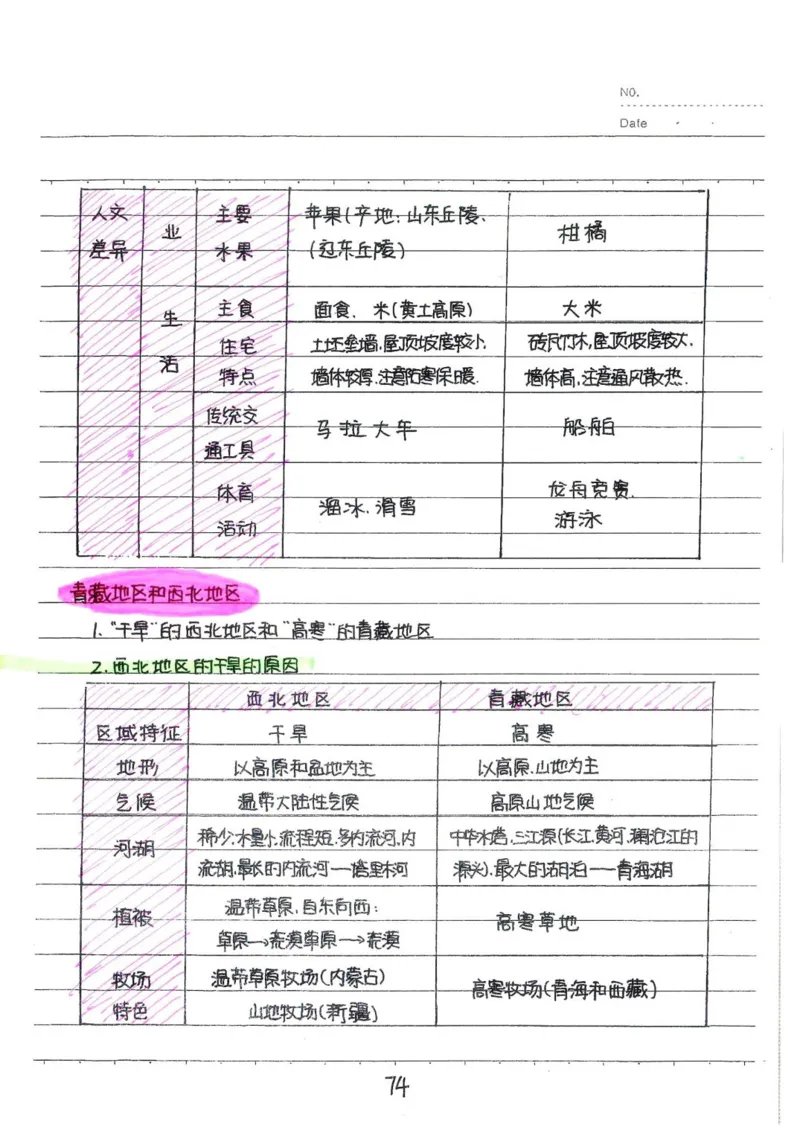 NO.
Date
人文 业 主要 苹果(产地:山东丘陵、 柑橘
差异 水果 (辽东丘陵)
生活 主食 面食、米(黄土高原) 大米
住宅 土坯垒墙,屋顶坡度较小. 砖瓦竹木,屋顶坡度较大.
特点 墙体较厚.注意防寒保暖. 墙体高,注意通风散热.
传统交 马拉大车 船舶
通工具
体育 溜冰.滑雪 龙舟竞赛.
活动 游泳
青藏地区和西北地区
1."干旱"的西北地区和"高寒"的青藏地区
2.西北地区的干旱的原因
西北地区 青藏地区
区域特征 干旱 高寒
地形 以高原和盆地为主 以高原.山地为主
气候 温带大陆性气候 高原山地气候
河湖 稀少.水量小.流程短.多内流河.内 中华水塔,三江源(长江.黄河.澜沧江的
流湖.最长的内流河——塔里木河 源头).最大的湖泊——青海湖
植被 温带草原.自东向西: 高寒草地
草原→荒漠草原→荒漠
牧场 温带草原牧场(内蒙古) 高寒牧场(青海和西藏)
特色 山地牧场(新疆)
74